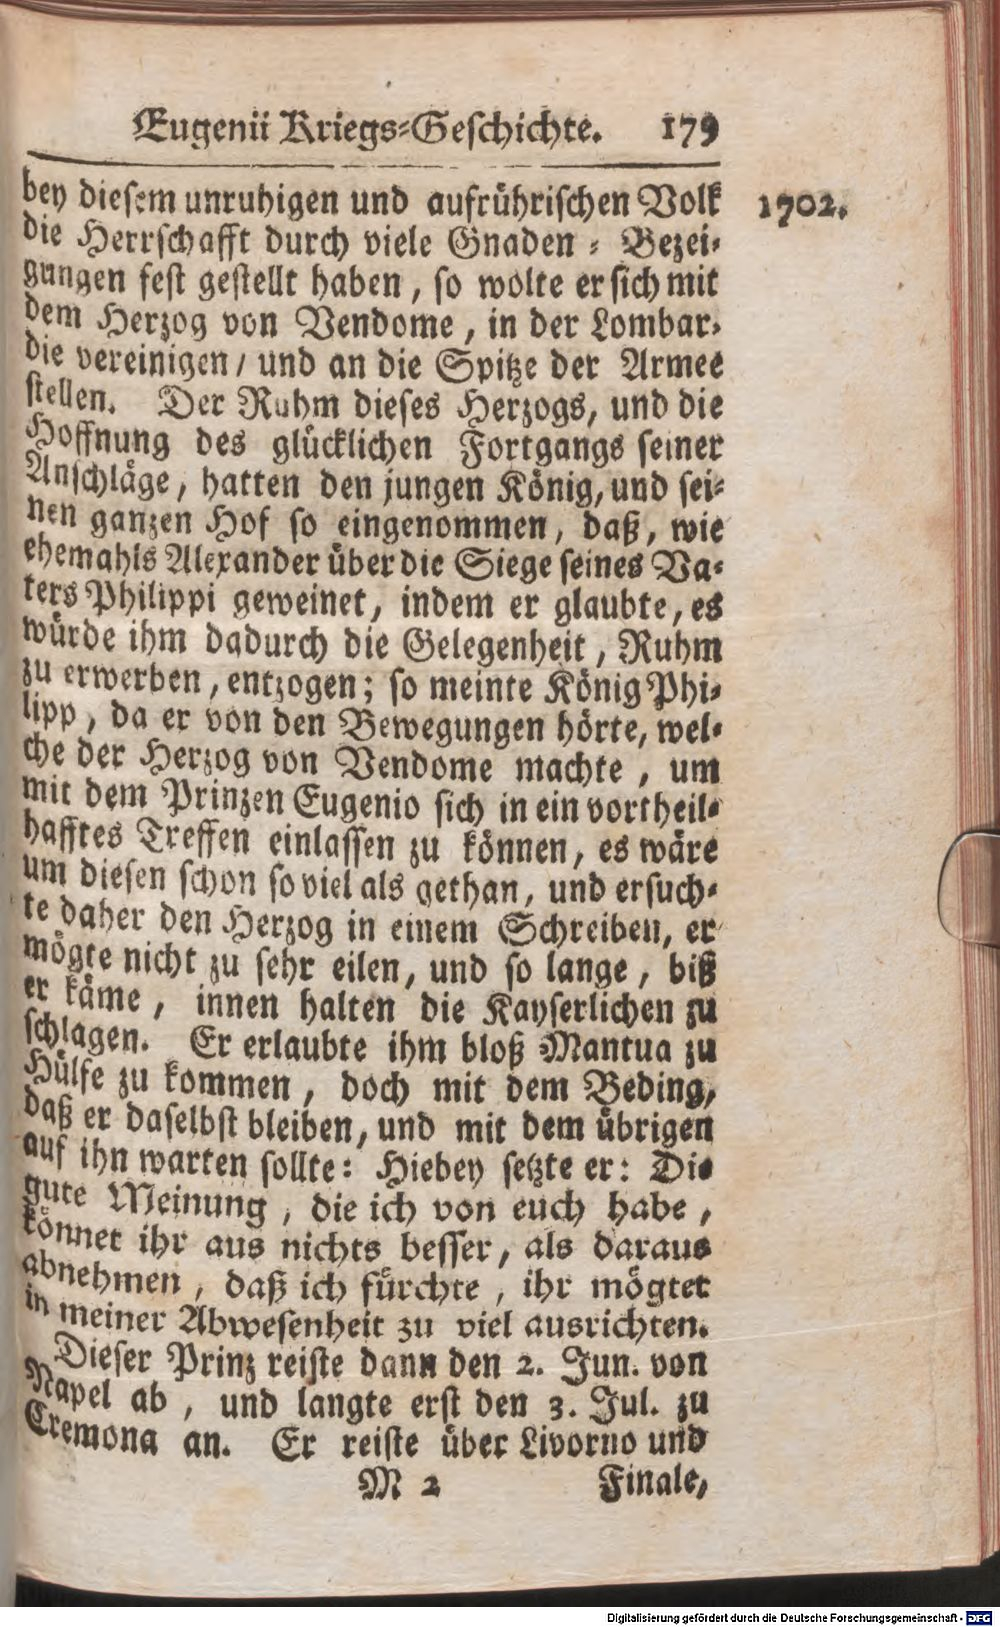 Eugenii Kriegs-Geschichte. 179
1702.
bey diesem unruhigen und aufrührischen Volk
die Herrschafft durch viele Gnaden-Bezei-
gungen fest gestellt haben, so wolte er sich mit
dem Herzog von Vendome, in der Lombar-
die vereinigen/ und an die Spitze der Armee
stellen. Der Ruhm dieses Herzogs, und die
Hoffnung des glücklichen Fortgangs seiner
Anschläge, hatten den jungen König, und sei-
nen ganzen Hof so eingenommen, daß, wie
ehemahls Alexander über die Siege seines Va-
ters Philippi geweinet, indem er glaubte, es
würde ihm dadurch die Gelegenheit, Ruhm
zu erwerben, entzogen; so meinte König Phi-
lipp, da er von den Bewegungen hörte, wel-
che der Herzog von Vendome machte, um
mit dem Prinzen Eugenio sich in ein vortheil-
hafftes Treffen einlassen zu können, es wäre
um diesen schon so viel als gethan, und ersuch-
te daher den Herzog in einem Schreiben, er
mögte nicht zu sehr eilen, und so lange, biß
er käme, innen halten die Kayserlichen zu
schlagen. Er erlaubte ihm bloß Mantua zu
Hülfe zu kommen, doch mit dem Beding,
daß er daselbst bleiben, und mit dem übrigen
auf ihn warten sollte: Hiebey setzte er: Die
gute Meinung, die ich von euch habe,
könnet ihr aus nichts besser, als daraus
abnehmen, daß ich fürchte, ihr mögtet
in meiner Abwesenheit zu viel ausrichten.
Dieser Prinz reiste dann den 2. Jun. von
Napel ab, und langte erst den 3. Jul. zu
Cremona an. Er reiste über Livorno und
M 2 Finale,
Digitalisierung gefördert durch die Deutsche Forschungsgemeinschaft - DFG